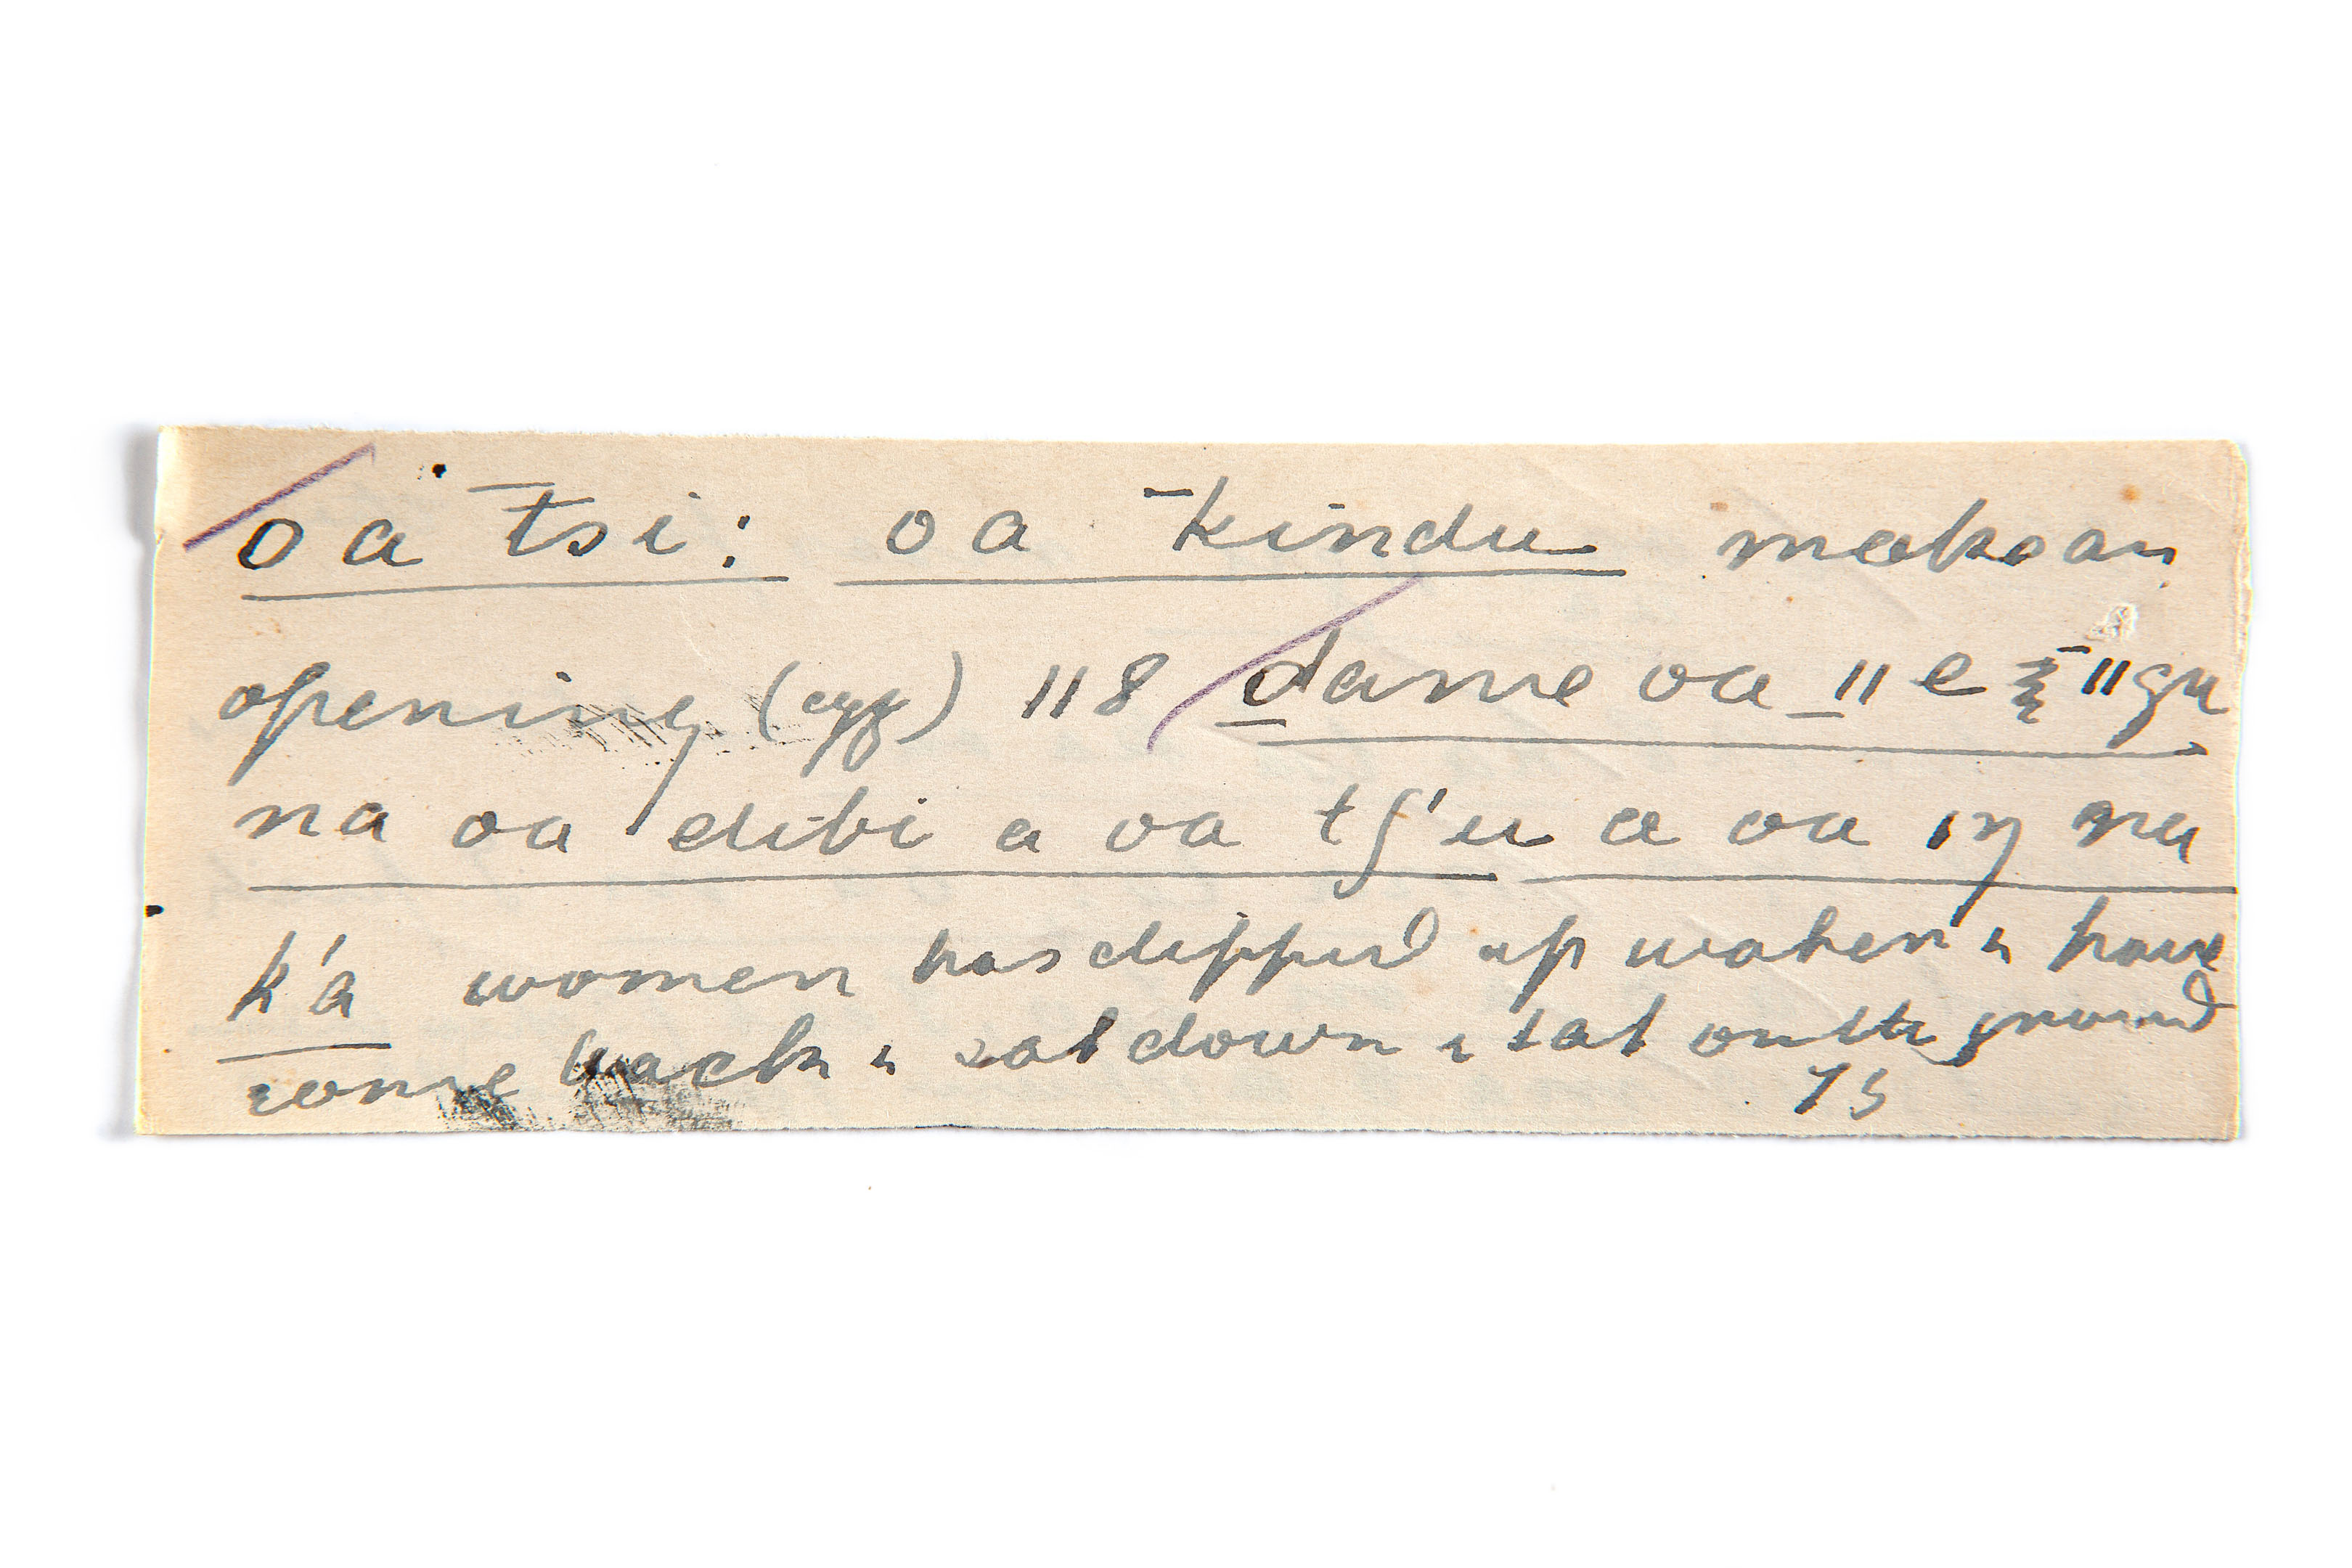 oa ̄tsi: oa ̄kindu makes an
opening (egg) ǁ 8 dame oa ǁ e ̄ǁgu
na oa dibi a oa tʃ'u a oa ŋ na
k'a women has dipped up water & have
come back & sat down & sat on the ground